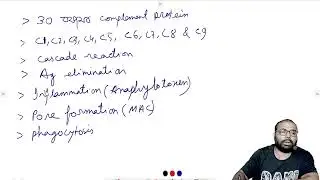 > 30 complement protein
> C1, C2, C3, C4, C5, C6, C7, C8 & C9
> Cascade reaction
> Ag elimination
> Inflammation (Anaphylotoxen)
> Pore formation (MAC)
> phagocytosis